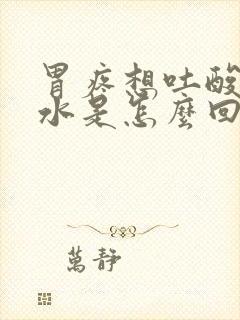 胃疼想吐酸
水是怎麼回
萬靜